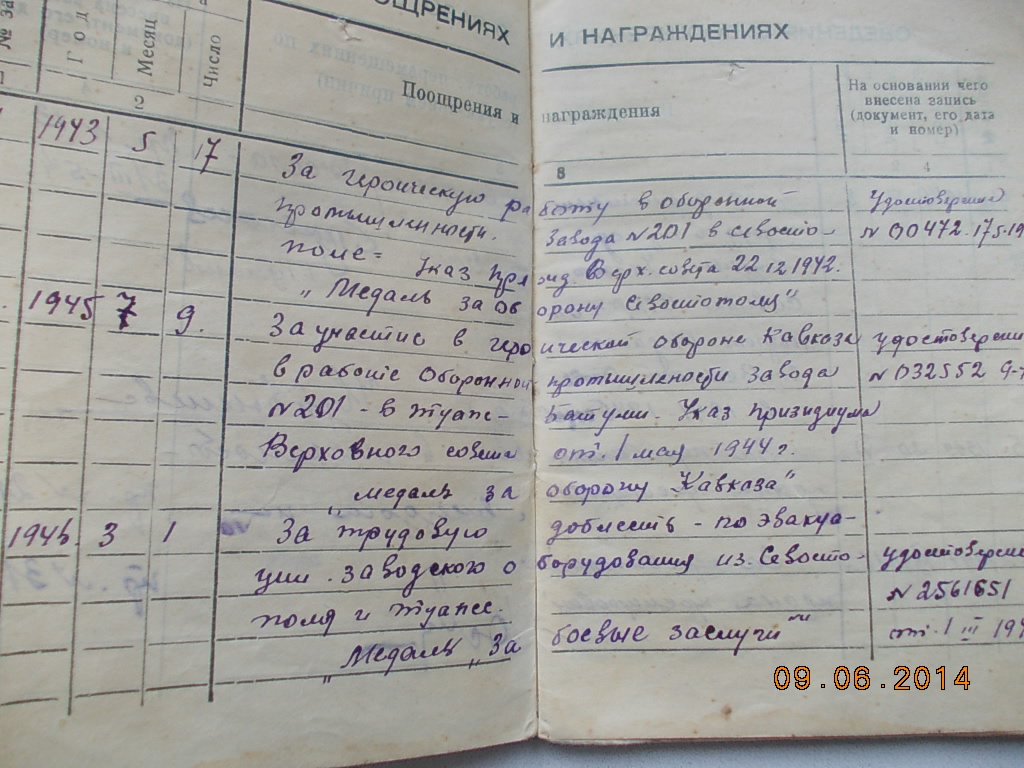 ПООЩРЕНИЯХ И НАГРАЖДЕНИЯХ
№ за
Год
Месяц
Число
Поощрения и награждения
На основании чего внесена запись (документ, его дата и номер)
1 2 3 4
1943 5 17 За героическую работу в оборонной Удостоверение
промышленности. Завода №201 в Севосто- №00472.175.19
поле= Указ През ид. Верх. совета 22 12 1942.
„Медаль за оборону Севостополя"
1945 7 9. За участие в героической обороне Кавказа удостоверени
в работе Оборонной промышлености завода №032552 9-
№201 - в туапс- батуми. Указ призидиума
Верховного совета от. 1 мая 1944г.
„медаль за оборону „Кавказа"
1946. 3 1 За трудовую доблесть - по эвакуа-
ции. заводского оборудования из. Севосто- удостоверени
поля и туапсе. №2561651
„Медаль „За боевые заслуги"" от. 1 III 194
09.06.2014